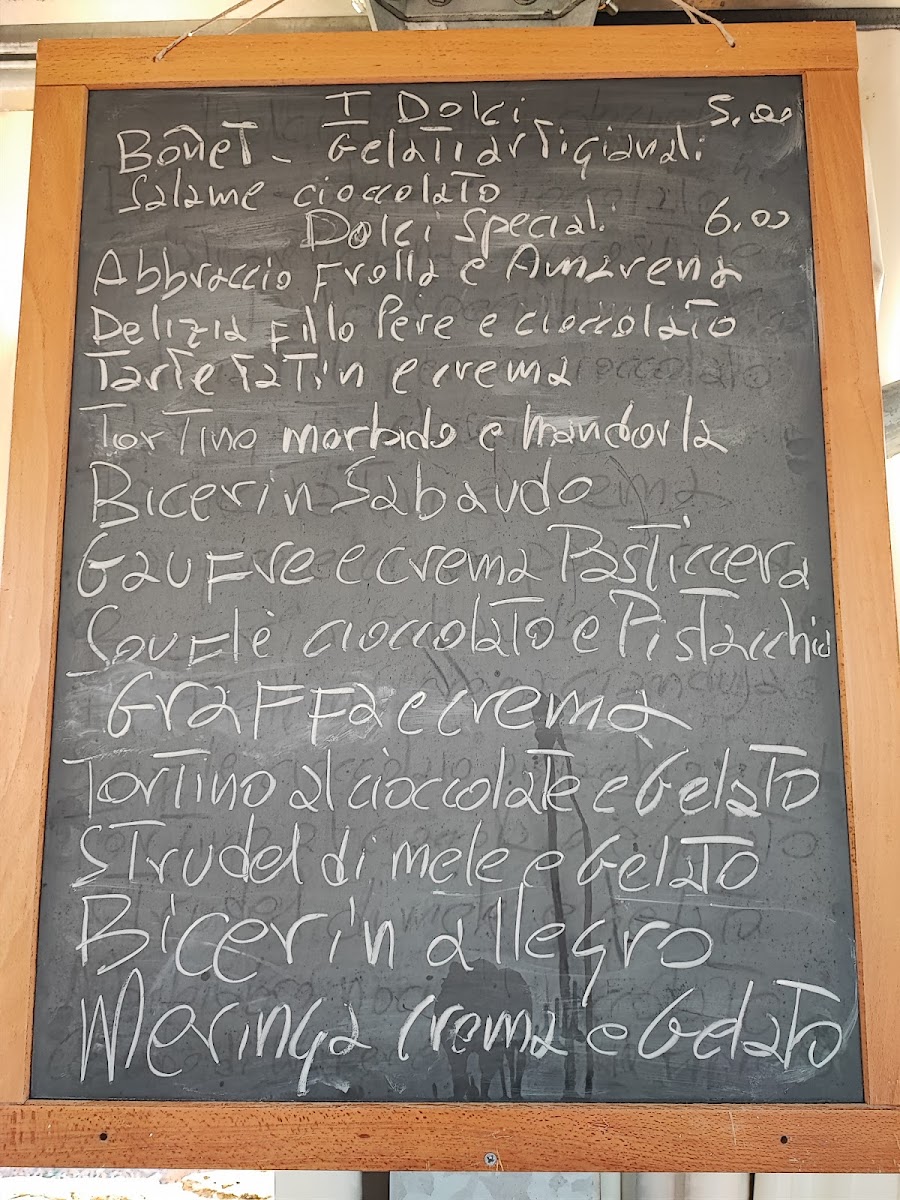 I Dolci 5,00
Bonet - Gelati artigianali
Salame cioccolato
Dolci Speciali 6,00
Abbraccio Frolla e Amarena
Delizia Fillo Pere e cioccolato
Tarte Tatin e crema
Tortino morbido e mandorla
Bicerin Sabaudo
Gaufre e crema Pasticcera
Souflè cioccolato e Pistacchio
Graffa e crema
Tortino al cioccolato e Gelato
Strudel di mele e Gelato
Bicerin allegro
Meringa crema e Gelato